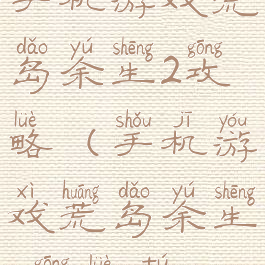 手机游戏荒
dǎo yú shēng gōng
岛余生2攻
lüè shǒu jī yóu
略（手机游
xì huāng dǎo yú shēng
戏荒岛余生
gōng lüè